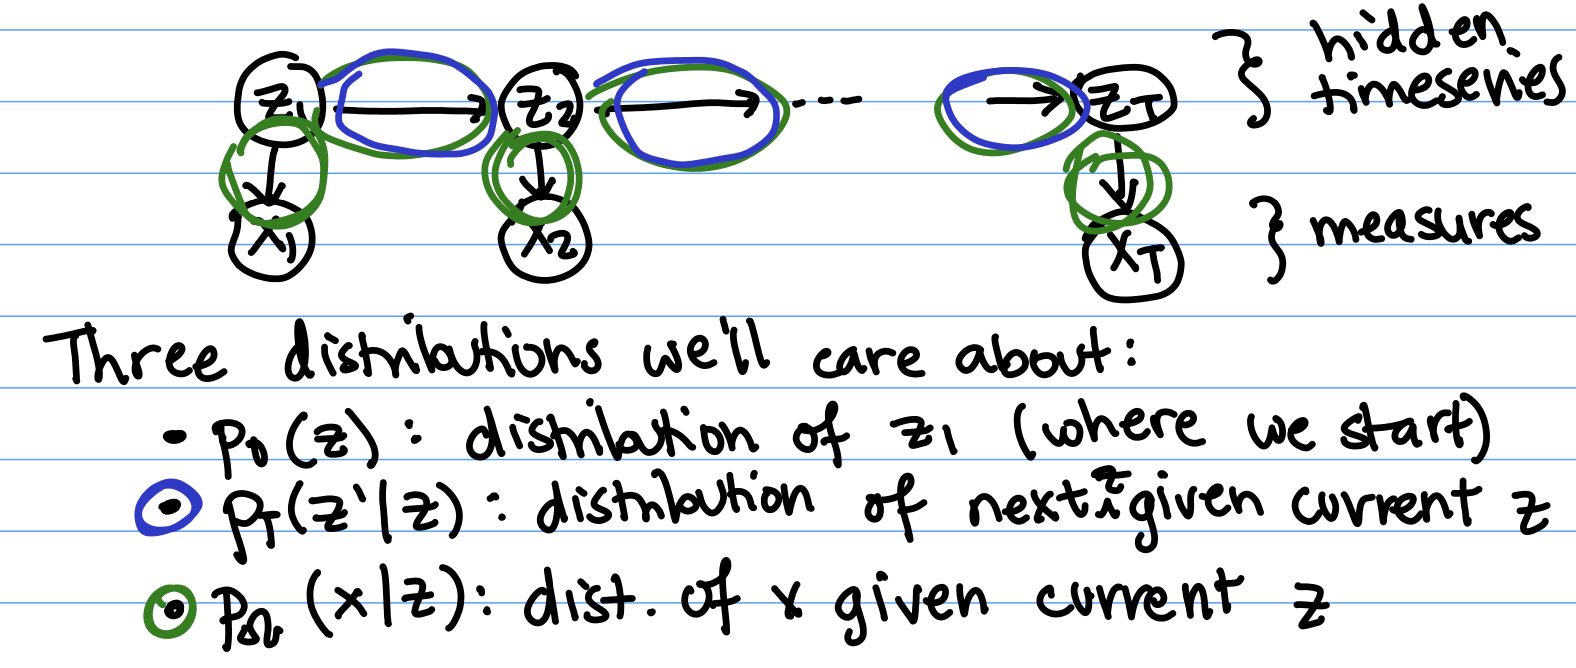 z₁ z₂ ... z_T } hidden timeseries
x₁ x₂ x_T } measures
Three distributions we'll care about:
• p₀(z) : distribution of z₁ (where we start)
• p_T(z'|z) : distribution of next z given current z
• p (x|z): dist. of x given current z